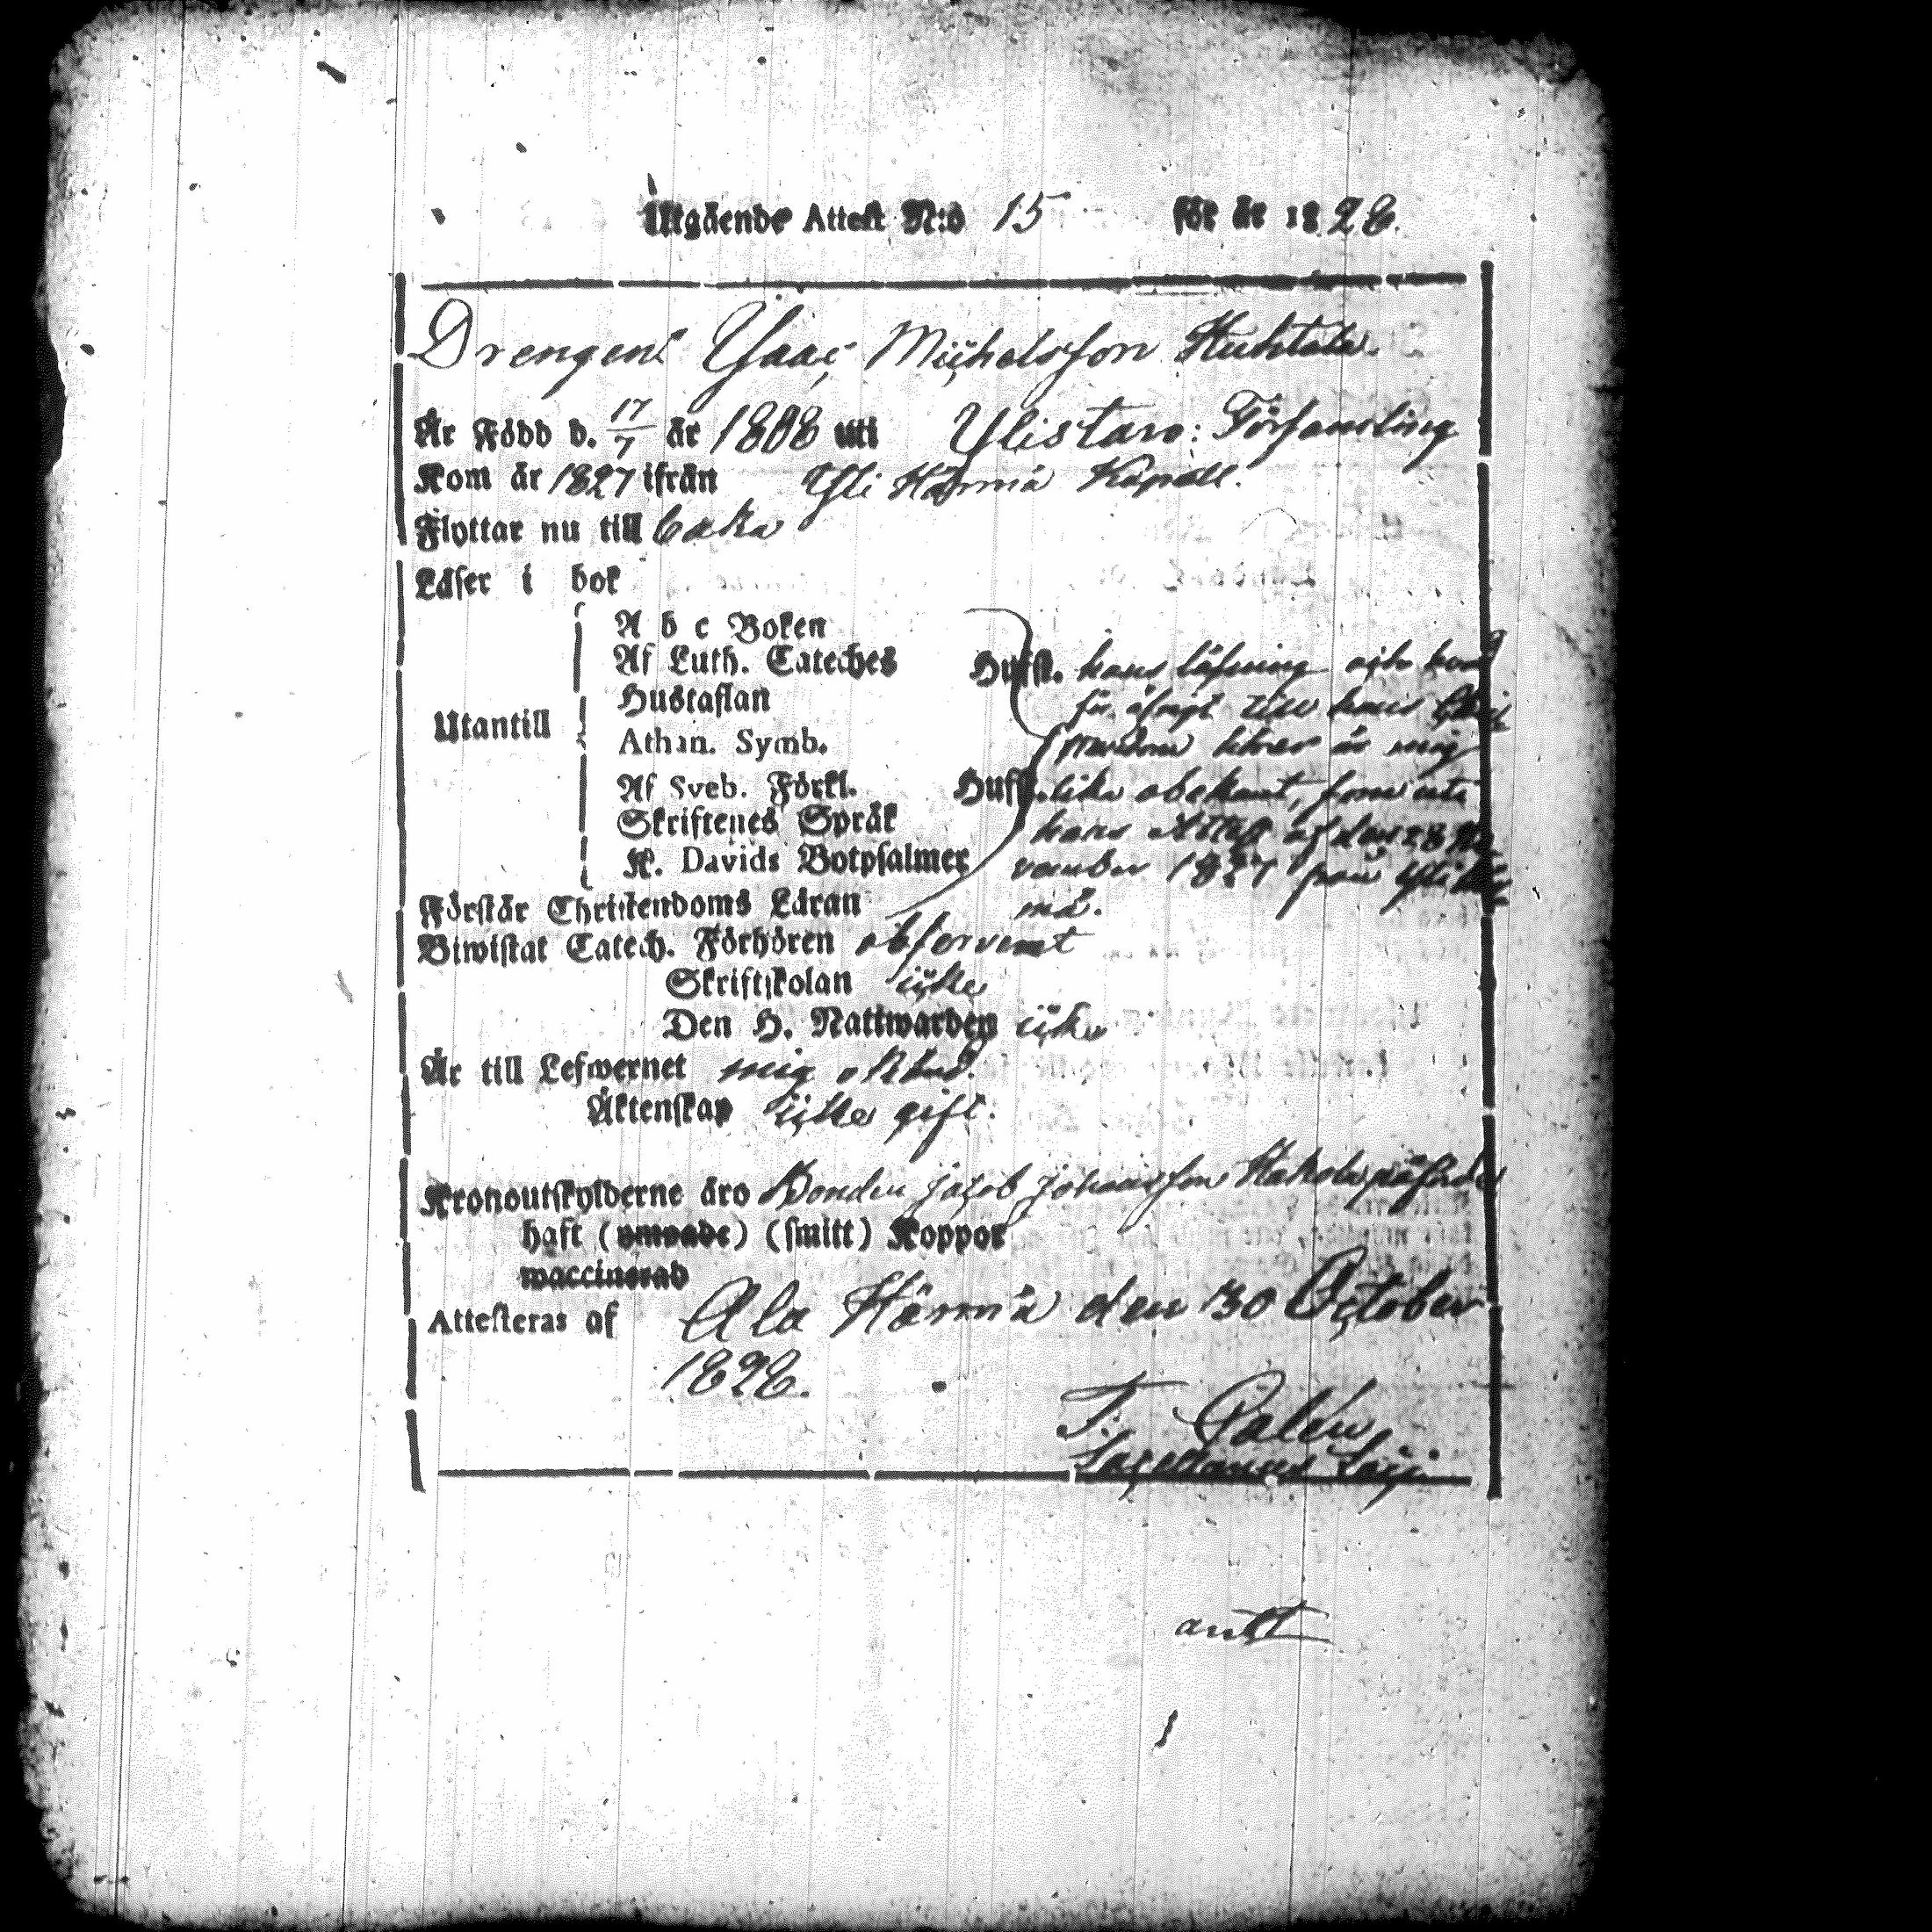 Utgående Attest N:o 15 för år 1828.
Drengen Isaac Michelsson Huhtala
Är Född d. 17/7 år 1808 uti Ylistaro: Församling
Kom år 1827 ifrån Yli Härmä Kapell.
Flyttar nu till baka
Läser i bok
A b c Boken
Af Luth. Cateches Hufst. hans läsning och hvad
Hustaflan för öfrigt till hans
Utantill
Athan. Symb. hörer är mig
Af Sveb. Förkl. Hufst. lika obekant, som uti
Skriftenes Språk hans Attest af den 28 No
K. Davids Botpsalmer vember 1827 från Yli Här
Förstår Christendoms Läran mä.
Biwistat Catech. Förhören observerat
Skriftskolan icke
Den H. Nattwarden icke
Är till Lefwernet mig okänd.
Äktenskap icke gift.
Kronoutskylderne äro Bonden Jacob Johansson påförde
haft (ympade) (smitt) Koppor
waccinerad
Attesteras af Ala Härmä den 30 October
1828.
Sacellanus Loci
antt